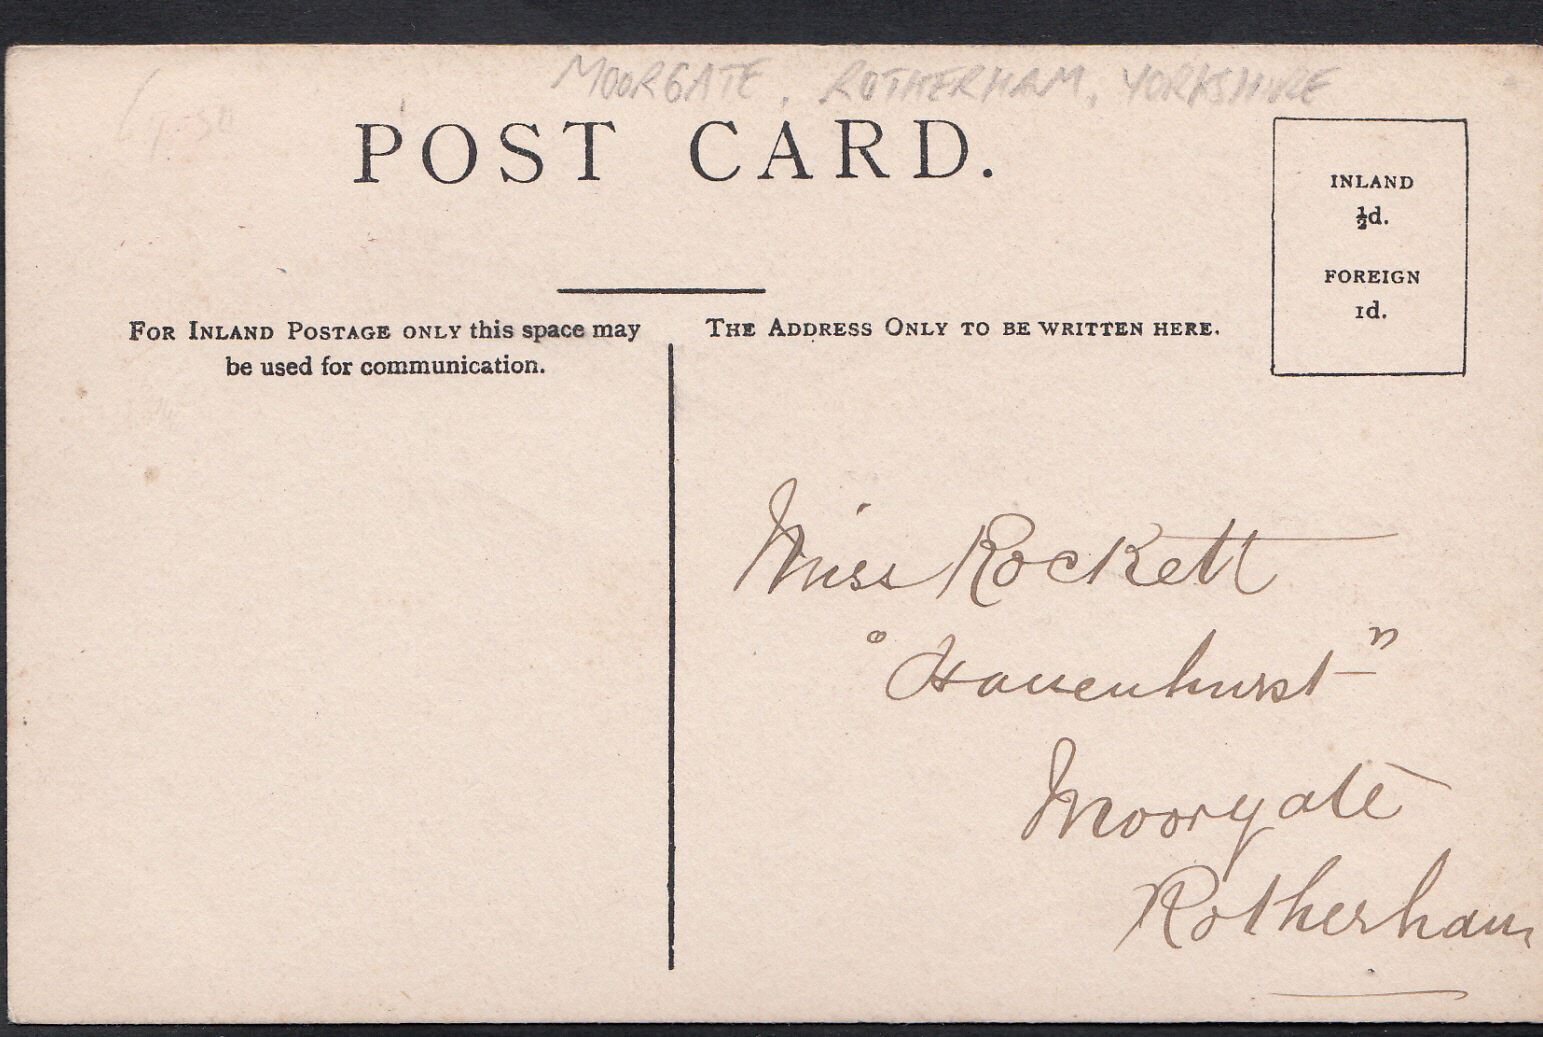 MOORGATE, ROTHERHAM, YORKSHIRE
POST CARD.
INLAND
½d.
FOREIGN
1d.
FOR INLAND POSTAGE ONLY this space may
be used for communication.
THE ADDRESS ONLY TO BE WRITTEN HERE.
Miss Rockett
"Hauenhurst"
Moorgate
Rotherham